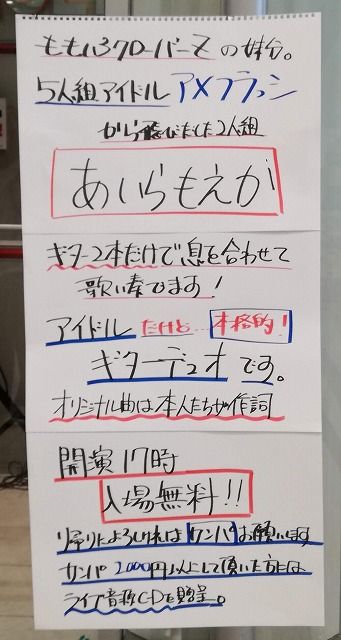 ももいろクローバーZの妹分。
5人組アイドル アメフラッシ
から飛びだした2人組
あいらもえか
ギター2本だけで息を合わせて
歌い奏でます!
アイドルだけど…本格的!
ギターデュオです。
オリジナル曲は本人たちが作詞
開演17時
入場無料!!
お帰りによろしければカンパお願いします
カンパ2000円以上して頂いた方には
ライブ音源CDを贈呈。